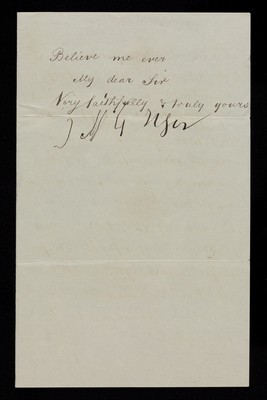 Believe me ever
My dear Sir
Very faithfully & truly yours